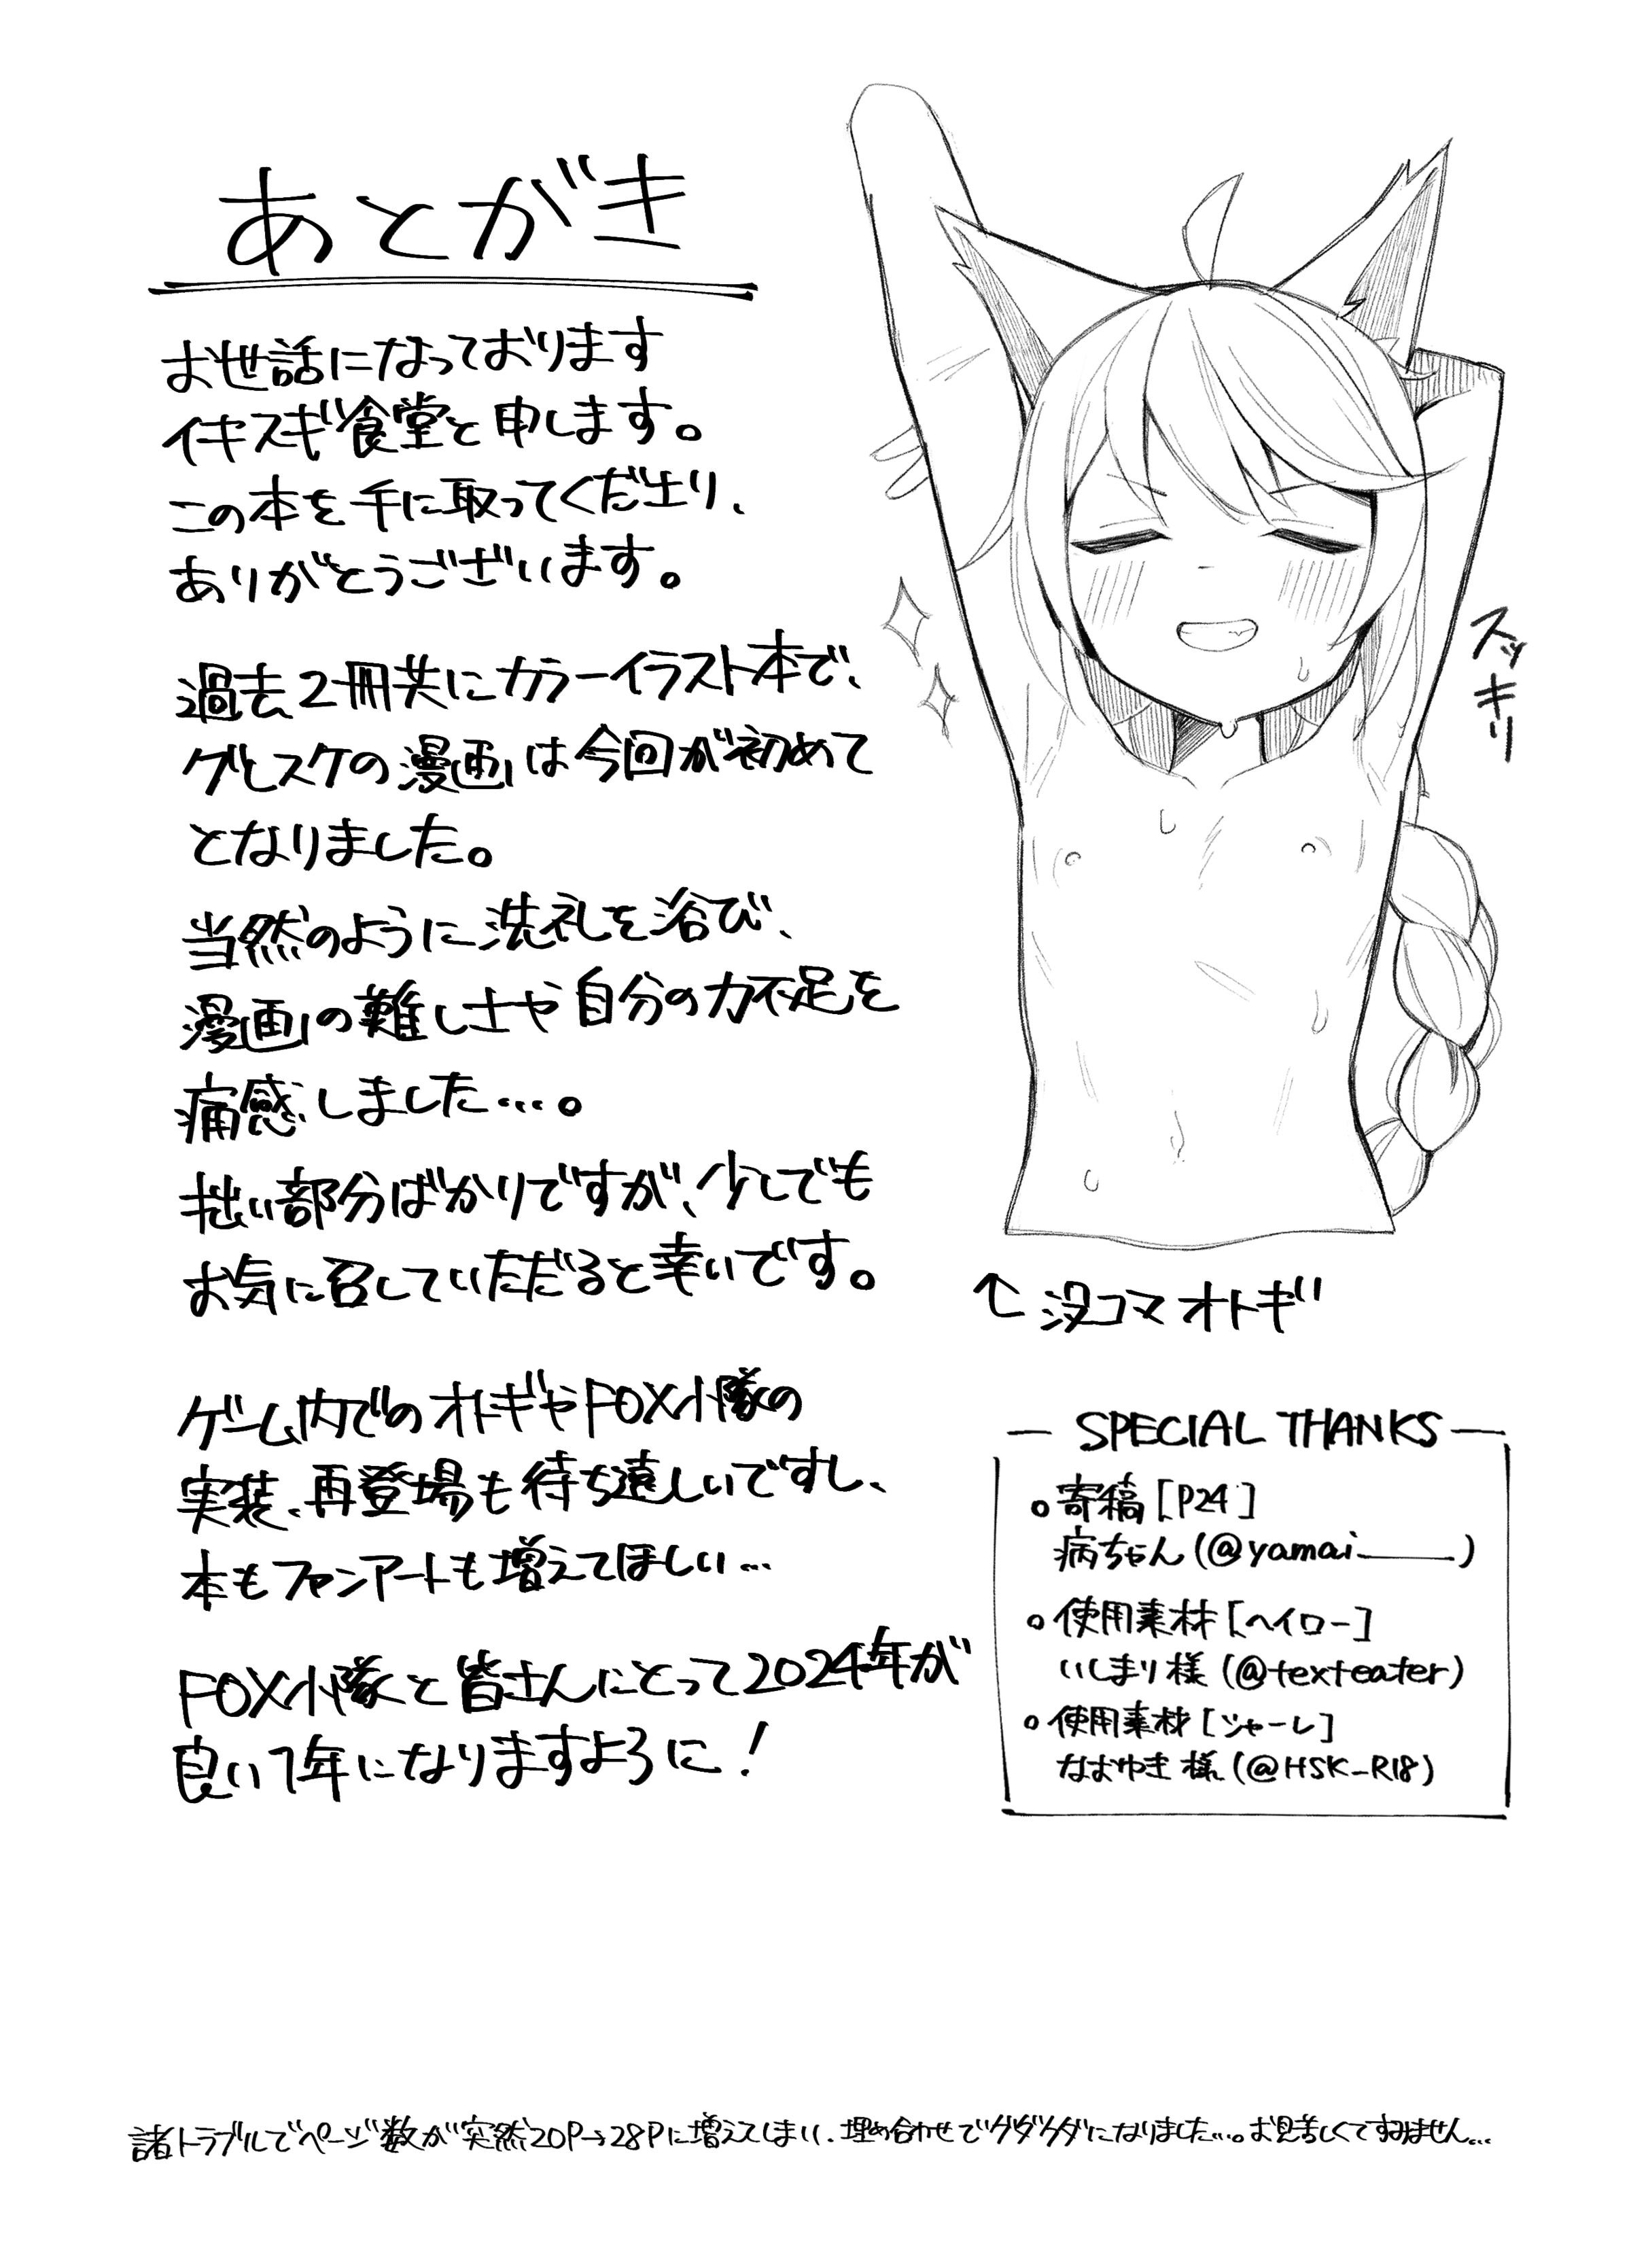 あとがき
お世話になっております
イキスギ食堂と申します。
この本を手に取ってくださり、
ありがとうございます。
過去2冊共にカラーイラスト本で、
グレスケの漫画は今回が初めて
となりました。
当然のように洗礼を浴び、
漫画の難しさや自分の力不足を
痛感しました…。
拙い部分ばかりですが、少しでも
お気に召していただると幸いです。
ゲーム内でのオトギやFOX小隊の
実装、再登場も待ち遠しいですし、
本もファンアートも増えてほしい…
FOX小隊と皆さんにとって2024年が
良い1年になりますように!
スッキリ
↑没コマオトギ
SPECIAL THANKS
○寄稿[P24]
病ちゃん(@yamai_____)
○使用素材[ヘイロー]
いしまり様(@texteater)
○使用素材[シャーレ]
なおゆき様(@HSK_R18)
諸トラブルでページ数が突然20P→28Pに増えてしまい、埋め合わせでグダグダになりました…。お見苦しくてすみません…